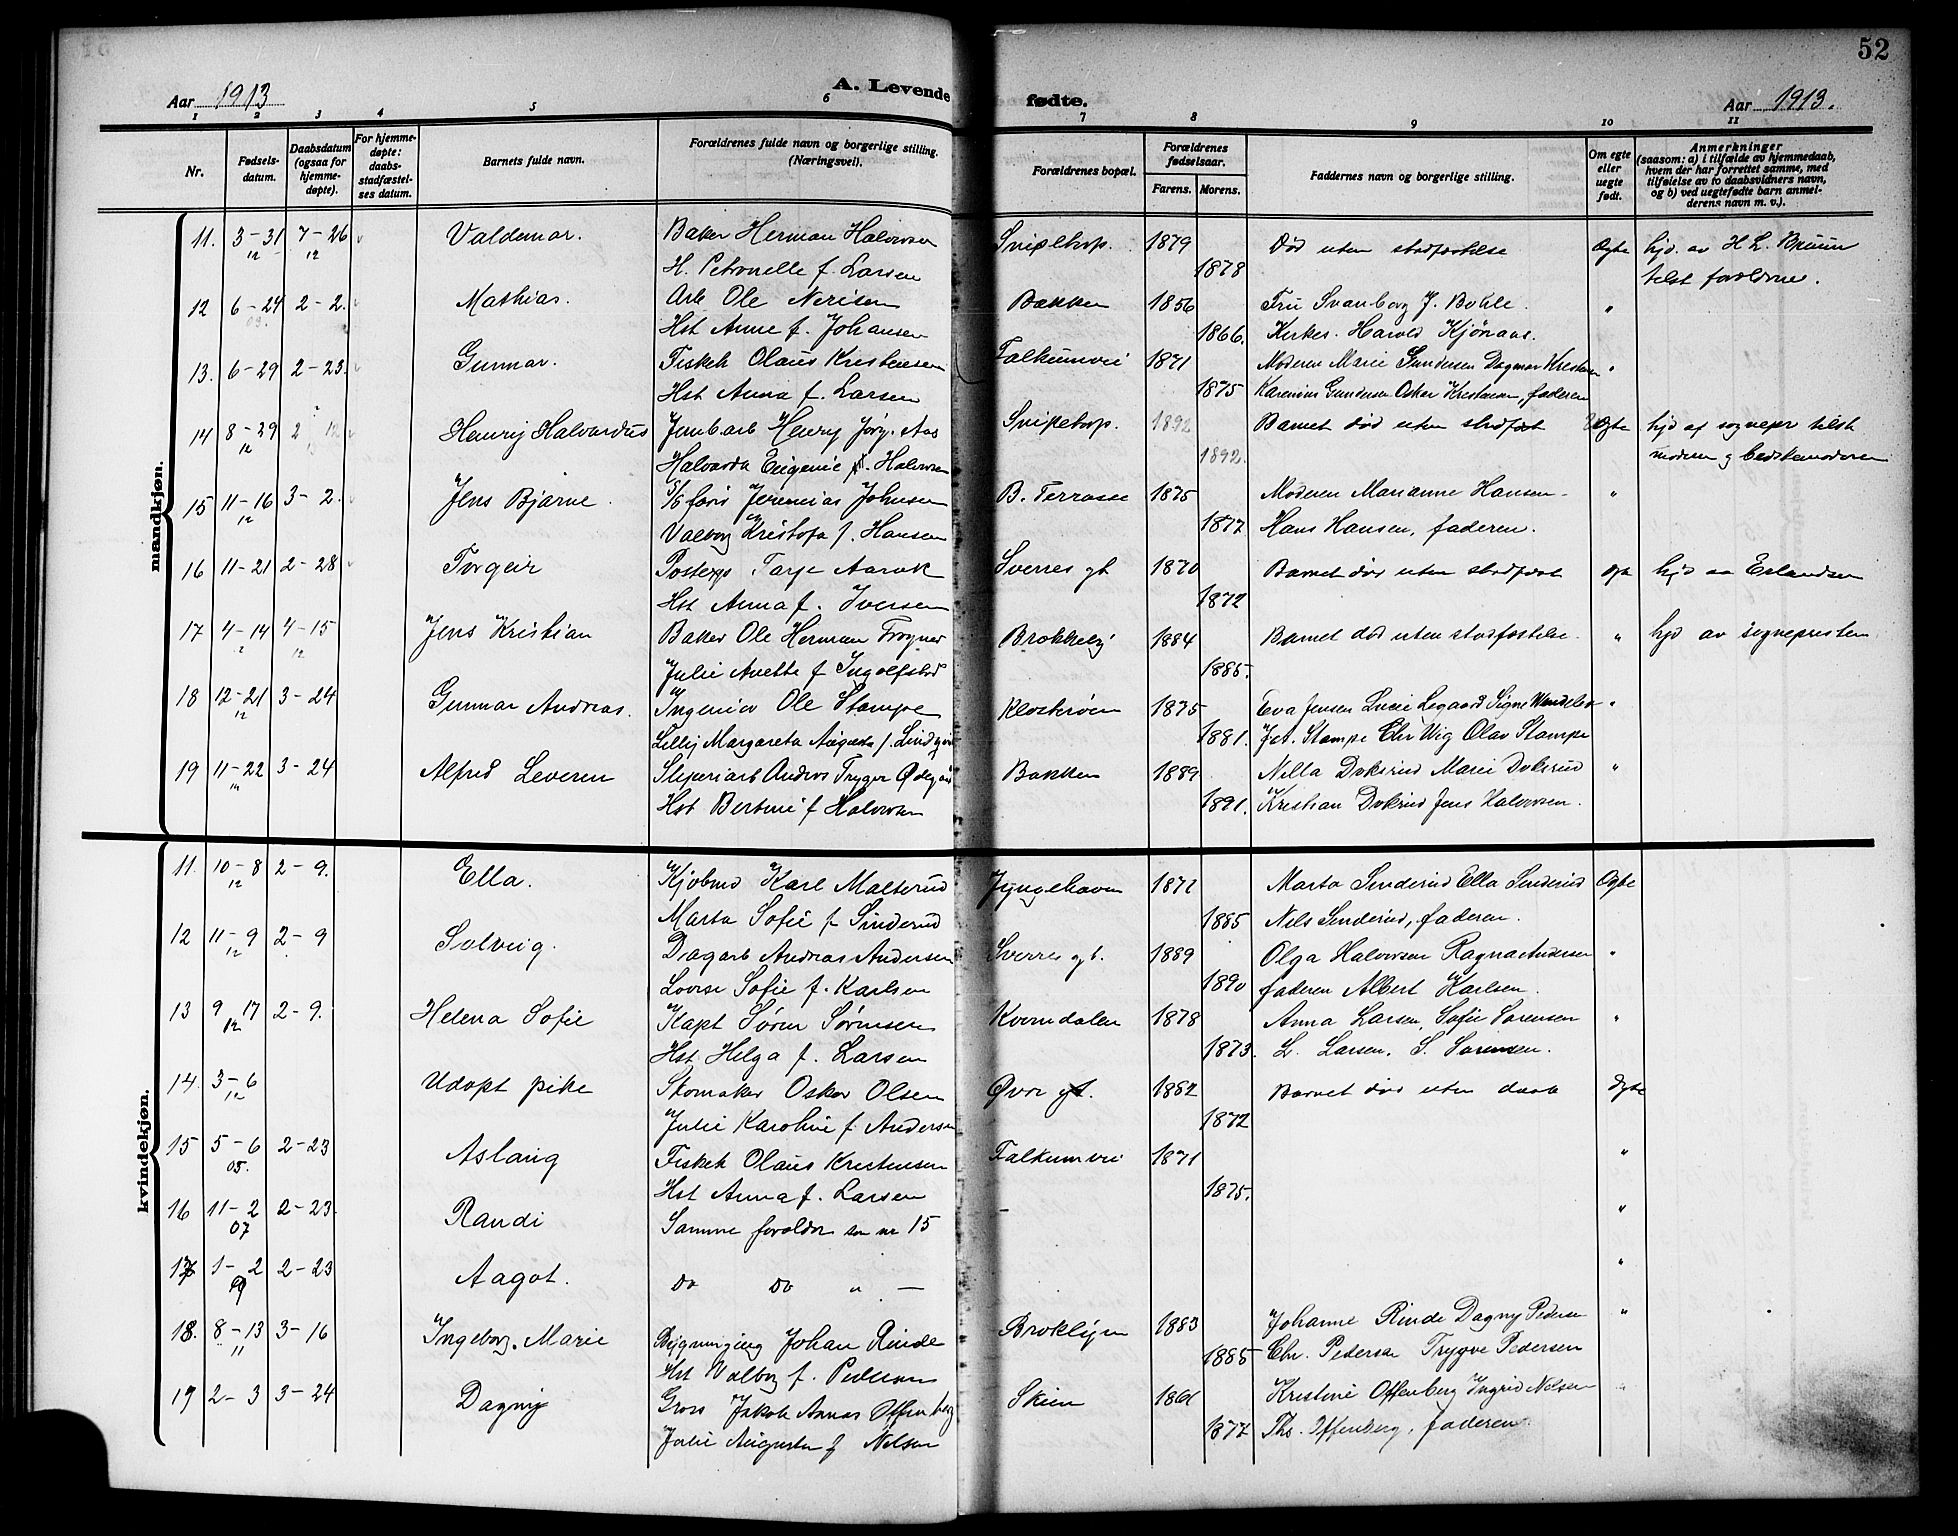 52
Aar 1913
A. Levende fødte.
Aar 1913.
1 2 3 4 5 6 7 8 9 10 11
Nr.
Fødsels-
datum.
Daabsdatum
(ogsaa for
hjemme-
døpte).
For hjemme-
døpte:
daabs-
stadfæstel-
ses datum.
Barnets fulde navn.
Forældrenes fulde navn og borgerlige stilling.
(Næringsvei).
Forældrenes bopæl.
Forældrenes
fødselsaar.
Farens. Morens.
Faddernes navn og borgerlige stilling.
Om egte
eller
uegte
født.
Anmerkninger
(saasom: a) i tilfælde av hjemmedaab,
hvem der har forrettet samme, med
tilføielse av to daabsvidners navn,
og b) ved uegtefødte barn anmel-
derens navn m. v.).
mandkjøn.
11. 3-31/12 7-26/12 Valdemar. Baker Herman Halvorsen Snipetorp. 1879 Død uten stadfæstelse Ægte hjd. av H. L. Bruun
H. Petronelle f. Larsen 1878 tilst forældrene.
12 6-24/09. 2-2. Mathias. Arb Ole Nerisen Bakken 1856 Fru Svanborg J. Bohle. "
Hst Anne f. Johansen 1866. Kirkes. Harold Kjønaas.
13. 6-29 2-23. Gunnar. Fiskeh Olaus Kristensen Falkumvei 1871 Moderen Marie Gundersen Dagmar Kristensen "
Hst Anna f. Larsen 1875 Karenius Gundersen Oskar Kristensen, faderen
14 8-29/12 2 12 Henry Halvardus Jernb.arb Henry Jørg. Aas Snipetorp. 1892 Barnet død uten stadfæst Uegte hjd af sognepr tilst
Halvarda Eugenie Halvorsen 1892. modern g bedstemoderen
15 11-16/12 3-2. Jens Bjarne. S/s fører Jeremias Johnsen B. Terrasse 1875 Moderen Marianne Hansen. "
Valborg Kristofa f. Hansen 1877 Hans Hansen, faderen.
16 11-21 2-28 Torgeir Posteksp. Tarje Aarak Sverres gt 1870 Barnet død uten stadfæst hjd av Erlandsen
Hst Anna f. Iversen 1872
17 4-14 4-15/12 Jens Kristian Baker Ole Herman Trogner Brekkeby 1884 Barnet død uten stadfæstelse. " hjd av sognepresten
Julie Anette f Ingolfsbø 1885.
18 12-21/12 3-24 Gunnar Andreas. Ingeniør Ole Stampe Klosterøen 1875 Eva Jensen Lucie Legaard Signe "
Lilly Margareta Augusta f. Lindqvist 1881. Stampe Chr Wig Olav Stampe
19 11-22 3-24 Alfred Leveren Sliperiarb Andreas Trygve Ødegård Bakken 1889 Nilla Doksrud Marie Doksrud "
Hst Bertine f Halvorsen 1891. Kristian Doksrud Jens Halvorsen.
kvindekjøn.
11. 10-8/12 2-9. Ella. Kjøbmd Karl Malterud Lyngehaven 1871 Marta Sinderud Ella Sinderud Ægte
Marta Sofie f Sinderud 1885 Nils Sinderud, faderen.
12 11-9/12 2-9 Solveig. Dagarb Andreas Andersen Sverres gt. 1889 Olga Halvorsen Ragna Andersen "
Lovise Sofie f. Karlsen 1890 faderen Albert Karlsen.
13 9 17/12 2-9. Helena Sofie Kapt Søren Sørensen Kverndalen 1878 Anna Larsen, Sofie Sørensen "
Hst. Helga f. Larsen 1873. L. Larsen. S. Sørensen.
14. 3-6/12 Udøpt pike Skomaker Oskar Olsen Øvre gt. 1882 Barnet død uten daab Ægte
Julie Karoline f. Andersen 1872
15 5-6/05. 2-23 Aslaug Fiskeh Olaus Kristensen Falkumvei 1871 "
Hst Anna f. Larsen 1875.
16 11-2/07 2-23. Randi Samme forældre som nr 15 – "
17 1-2/09 2-23 Aagot. do do " — "
18. 8-13/11 3-16 Ingeborg Marie Bygningsing Johan Rinde Brekkbyen 1883 Johanne Rinde Dagny Pedersen "
Hst Valborg f. Pedersen 1885 Chr. Pedersen Trygve Pedersen
19 2-3 3-24 Dagny Gross Jakob Annas Offenberg Skien 1861 Kristine Offenberg Ingrid Nelsen "
Julie Augusta f Nelsen 1877 Ths. Offenberg, faderen